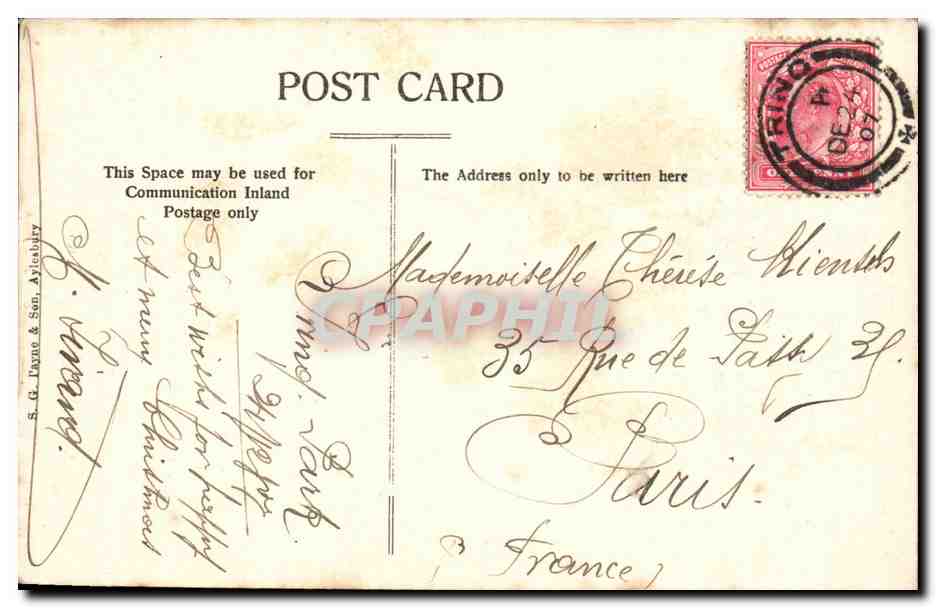 POST CARD
This Space may be used for
Communication Inland
Postage only
The Address only to be written here
TRING
A
DE 24
07
S. G. Payne & Son, Aylesbury
Tring. Park
Best wishs for happy
et merry Christmas
Mademoiselle Thérèse
35 Rue de
Paris.
France
CPAPHIL